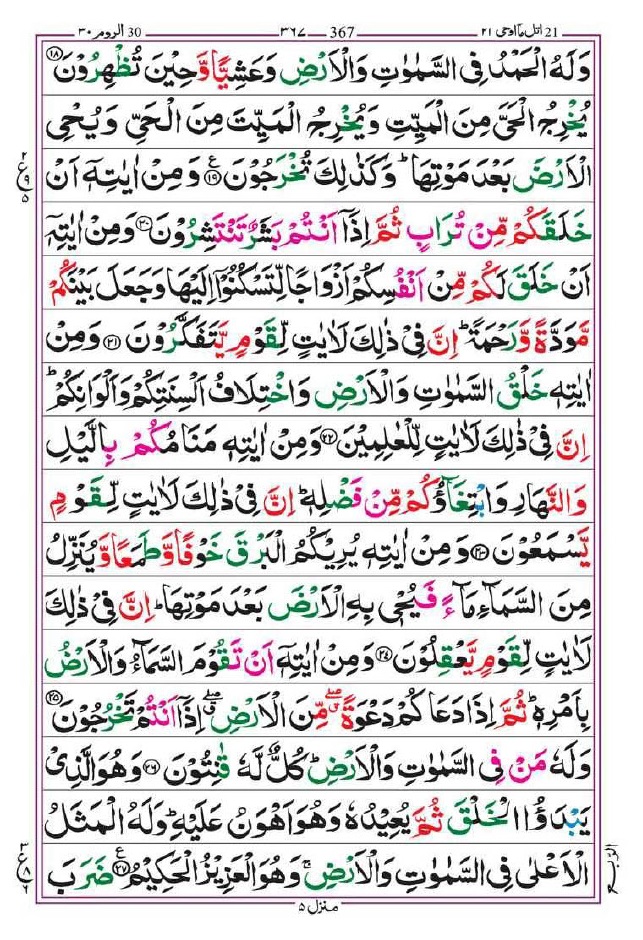 21 اتل مآ اوحی ٢١ 367 ٣٦٧ 30 الروم ٣٠
وَلَهُ الْحَمْدُ فِى السَّمٰوٰتِ وَالْاَرْضِ وَعَشِيًّا وَّحِيْنَ تُظْهِرُوْنَ ﴿١٨﴾
يُخْرِجُ الْحَىَّ مِنَ الْمَيِّتِ وَيُخْرِجُ الْمَيِّتَ مِنَ الْحَىِّ وَيُحْىِ
الْاَرْضَ بَعْدَ مَوْتِهَا ؕ وَكَذٰلِكَ تُخْرَجُوْنَ ﴿١٩﴾ ع وَمِنْ اٰيٰتِهٖۤ اَنْ
٢ ع ٩ ٥
خَلَقَكُمْ مِّنْ تُرَابٍ ثُمَّ اِذَاۤ اَنْتُمْ بَشَرٌ تَنْتَشِرُوْنَ ﴿٢٠﴾ وَمِنْ اٰيٰتِهٖۤ
اَنْ خَلَقَ لَكُمْ مِّنْ اَنْفُسِكُمْ اَزْوَاجًا لِّتَسْكُنُوْۤا اِلَيْهَا وَجَعَلَ بَيْنَكُمْ
مَّوَدَّةً وَّرَحْمَةً ؕ اِنَّ فِىْ ذٰلِكَ لَاٰيٰتٍ لِّقَوْمٍ يَّتَفَكَّرُوْنَ ﴿٢١﴾ وَمِنْ
اٰيٰتِهٖ خَلْقُ السَّمٰوٰتِ وَالْاَرْضِ وَاخْتِلَافُ اَلْسِنَتِكُمْ وَاَلْوَانِكُمْ ؕ
اِنَّ فِىْ ذٰلِكَ لَاٰيٰتٍ لِّلْعٰلِمِيْنَ ﴿٢٢﴾ وَمِنْ اٰيٰتِهٖ مَنَامُكُمْ بِالَّيْلِ
وَالنَّهَارِ وَابْتِغَآؤُكُمْ مِّنْ فَضْلِهٖ ؕ اِنَّ فِىْ ذٰلِكَ لَاٰيٰتٍ لِّقَوْمٍ
يَّسْمَعُوْنَ ﴿٢٣﴾ وَمِنْ اٰيٰتِهٖ يُرِيْكُمُ الْبَرْقَ خَوْفًا وَّطَمَعًا وَّيُنَزِّلُ
مِنَ السَّمَآءِ مَآءً فَيُحْىٖ بِهِ الْاَرْضَ بَعْدَ مَوْتِهَا ؕ اِنَّ فِىْ ذٰلِكَ
لَاٰيٰتٍ لِّقَوْمٍ يَّعْقِلُوْنَ ﴿٢٤﴾ وَمِنْ اٰيٰتِهٖۤ اَنْ تَقُوْمَ السَّمَآءُ وَالْاَرْضُ
بِاَمْرِهٖ ؕ ثُمَّ اِذَا دَعَاكُمْ دَعْوَةً ۖ مِّنَ الْاَرْضِ ۖ اِذَاۤ اَنْتُمْ تَخْرُجُوْنَ ﴿٢٥﴾
وَلَهٗ مَنْ فِى السَّمٰوٰتِ وَالْاَرْضِ ؕ كُلٌّ لَّهٗ قٰنِتُوْنَ ﴿٢٦﴾ وَهُوَ الَّذِىْ
يَبْدَؤُا الْخَلْقَ ثُمَّ يُعِيْدُهٗ وَهُوَ اَهْوَنُ عَلَيْهِ ؕ وَلَهُ الْمَثَلُ
الْاَعْلٰى فِى السَّمٰوٰتِ وَالْاَرْضِ ۚ وَهُوَ الْعَزِيْزُ الْحَكِيْمُ ﴿٢٧﴾ ع ضَرَبَ
٣ ع ٨ ٦
الربع
منزل ٥